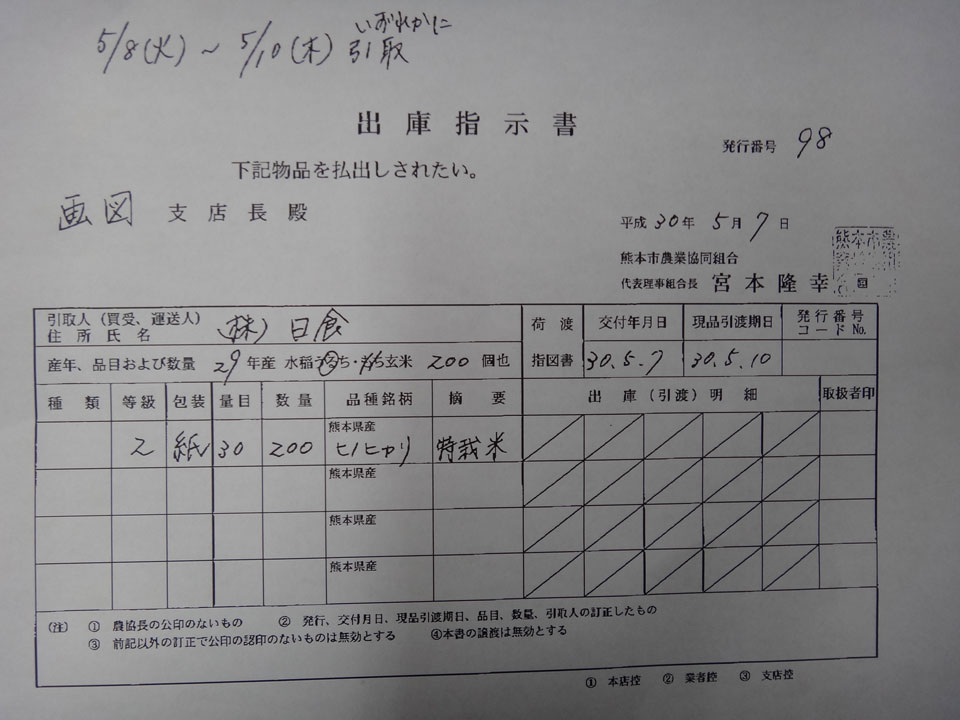 いずれかに
5/8(火)～5/10(木) 引取
出庫指示書
発行番号 98
下記物品を払出しされたい。
画図 支店長殿
平成30年5月7日
熊本市農業協同組合
代表理事組合長 宮本隆幸
引取人(買受、運送人)
住所氏名 (株)日食
荷渡 交付年月日 現品引渡期日 発行番号
コードNo.
産年、品目および数量 29年産 水稲うるち・もち玄米 200個也
指図書 30.5.7 30.5.10
種類 等級 包装 量目 数量 品種銘柄 摘要 出庫(引渡)明細 取扱者印
熊本県産
2 紙 30 200 ヒノヒカリ 特栽米
熊本県産
熊本県産
熊本県産
(注) ① 農協長の公印のないもの ② 発行、交付月日、現品引渡期日、品目、数量、引取人の訂正したもの
③ 前記以外の訂正で公印の認印のないものは無効とする ④本書の譲渡は無効とする
① 本店控 ② 業者控 ③ 支店控